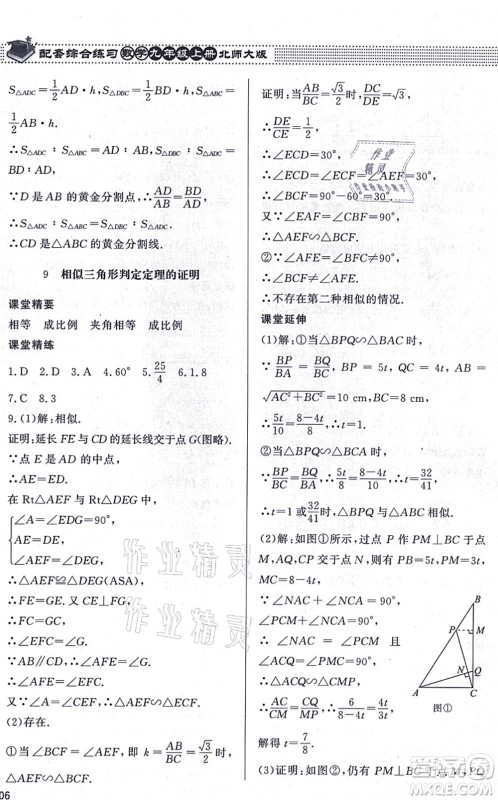 配套综合练习 数学九年级上册 北师大版
S△ADC=1/2AD·h,S△DBC=1/2BD·h,S△ABC=
1/2AB·h.
∴S△ADC:S△ABC=AD:AB,S△DBC:S△ADC=
BD:AD.
∵D是AB的黄金分割点,∴AD/AB=BD/AD.
∴S△ADC:S△ABC=S△DBC:S△ADC.
∴CD是△ABC的黄金分割线.
9 相似三角形判定定理的证明
课堂精要
相等 成比例 夹角相等 成比例
课堂精练
1.D 2.D 3.A 4.60° 5.25/4 6.1.8
7.C 8.3
9.(1)解:相似.
证明:延长FE与CD的延长线交于点G(图略).
∵点E是AD的中点,
∴AE=ED.
在Rt△AEF与Rt△DEG中,
∠A=∠EDG=90°,
AE=DE,
∠AEF=∠DEG,
∴△AEF≌△DEG(ASA).
∴FE=GE.又CE⊥FG,
∴FC=GC.
∴∠EFC=∠G.
又AB∥DC,∴∠AFE=∠G.
∴∠AFE=∠EFC.
又∵∠A=∠CEF=90°,∴△AEF∽△ECF.
(2)存在.
①当∠BCF=∠AEF,即k=AB/BC=√3/2时,
△AEF∽△BCF.
证明:当AB/BC=√3/2时,DC/DE=√3,
∴DE/CE=1/2.
∴∠ECD=30°,
∴∠ECD=∠ECF=∠AEF=30°.
∴∠BCF=90°-60°=30°.
又∵∠EAF=∠CBF=90°,
∴△AEF∽△BCF.
②∵EF不平行于BC,
∴∠BCF≠∠AFE.
∴不存在第二种相似情况.
课堂延伸
(1)解:①当△BPQ∽△BAC时,
∵BP/BA=BQ/BC,BP=5t,QC=4t,AB=
√AC²+BC²=10 cm,BC=8 cm,
∴5t/10=8-4t/8,∴t=1.
②当△BPQ∽△BCA时,
∵BP/BC=BQ/BA,∴5t/8=8-4t/10,∴t=32/41.
∴t=1或32/41时,
△BPQ与△ABC相似.
(2)解:如图①所示,过点P作PM⊥BC于点
M,AQ,CP交于点N,则有PB=5t,PM=3t,
MC=8-4t,
∵∠NAC+∠NCA=90°,
∠PCM+∠NCA=90°,
∴∠NAC=∠PCM且
∠ACQ=∠PMC=90°,
∴△ACQ∽△CMP.∴
AC/CM=CQ/MP.∴6/8-4t=4t/3t,
解得t=7/8.
B
P
M
N
Q
A
C
图①
(3)证明:如图②所示,仍有PM⊥BC于点M,
06
作业精灵
作业精灵